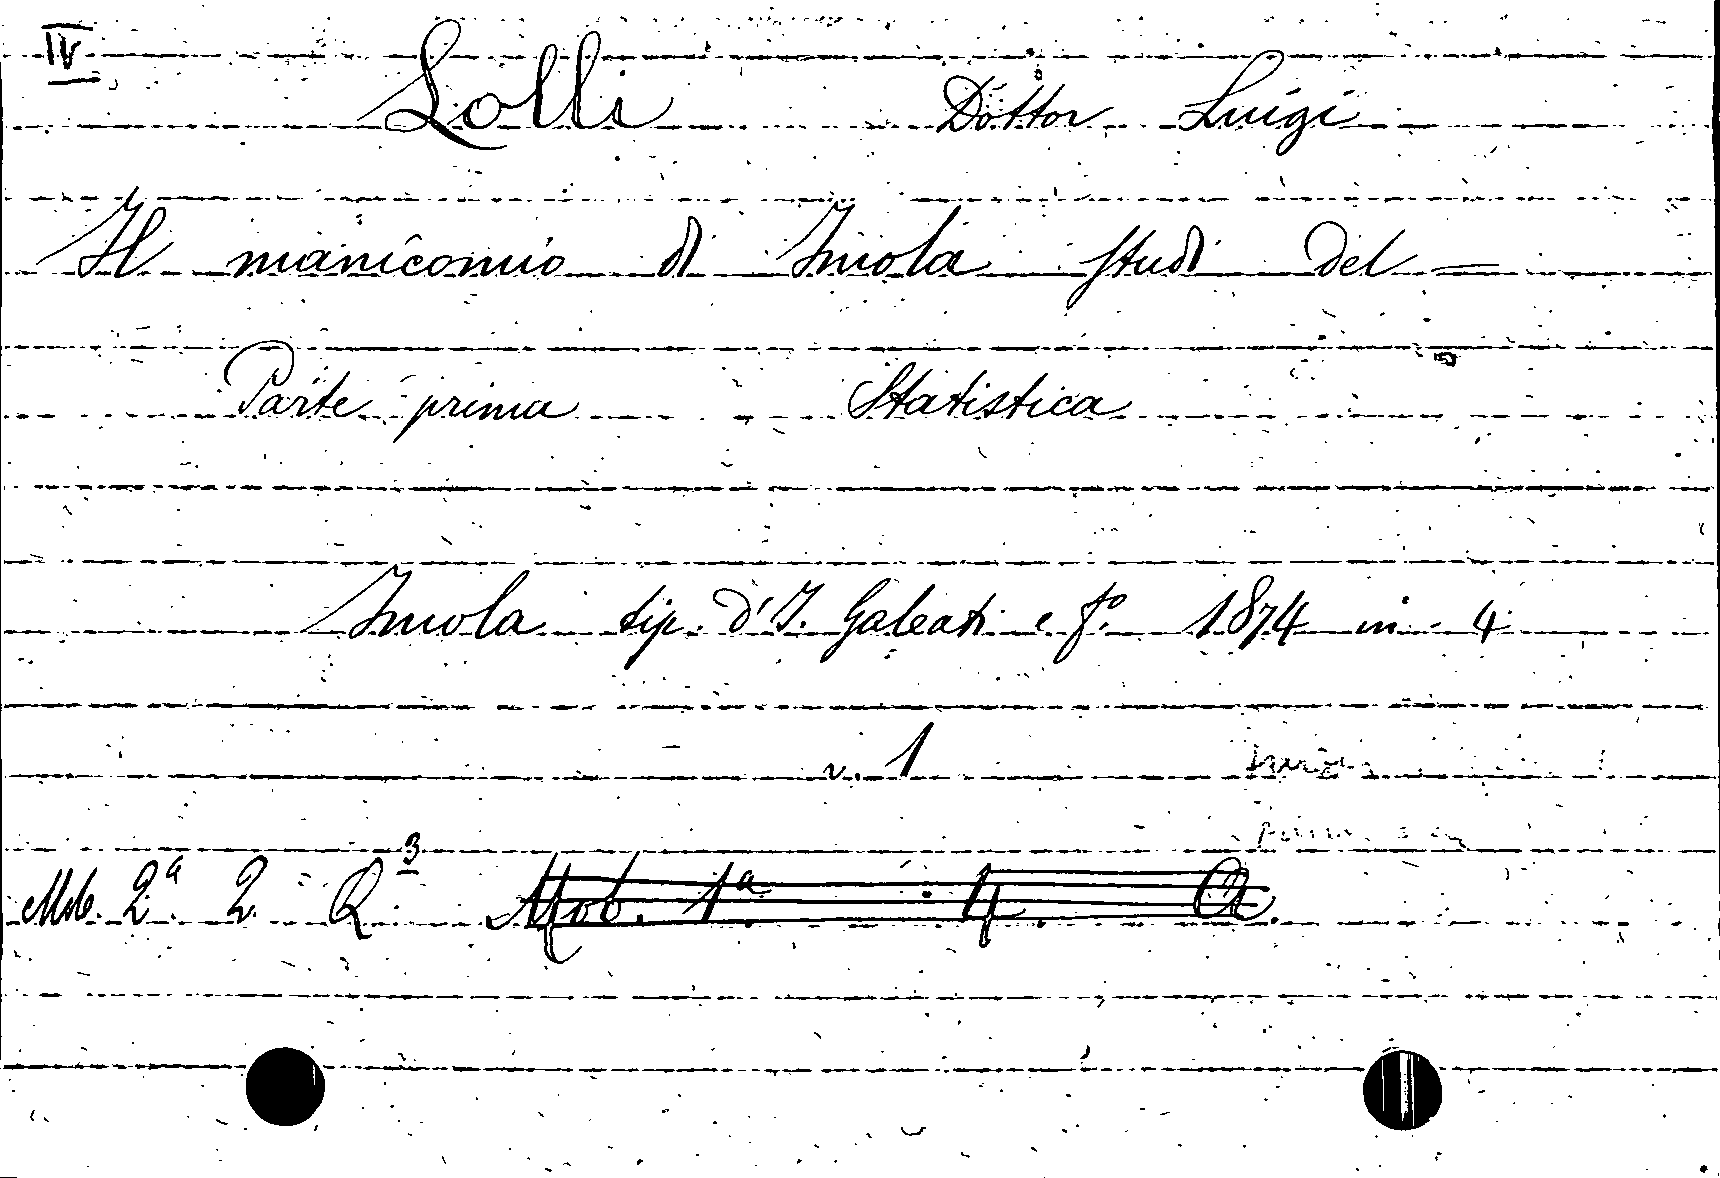 IV
Lolli Dottor Luigi
Il manicomio di Imola studi del =
Parte prima Statistica
Imola tip. d'I. Galeati e f.° 1874 in 4
v. 1
Mob. 2ª. 2. Q 3 Mob. 1ª 4. Q.